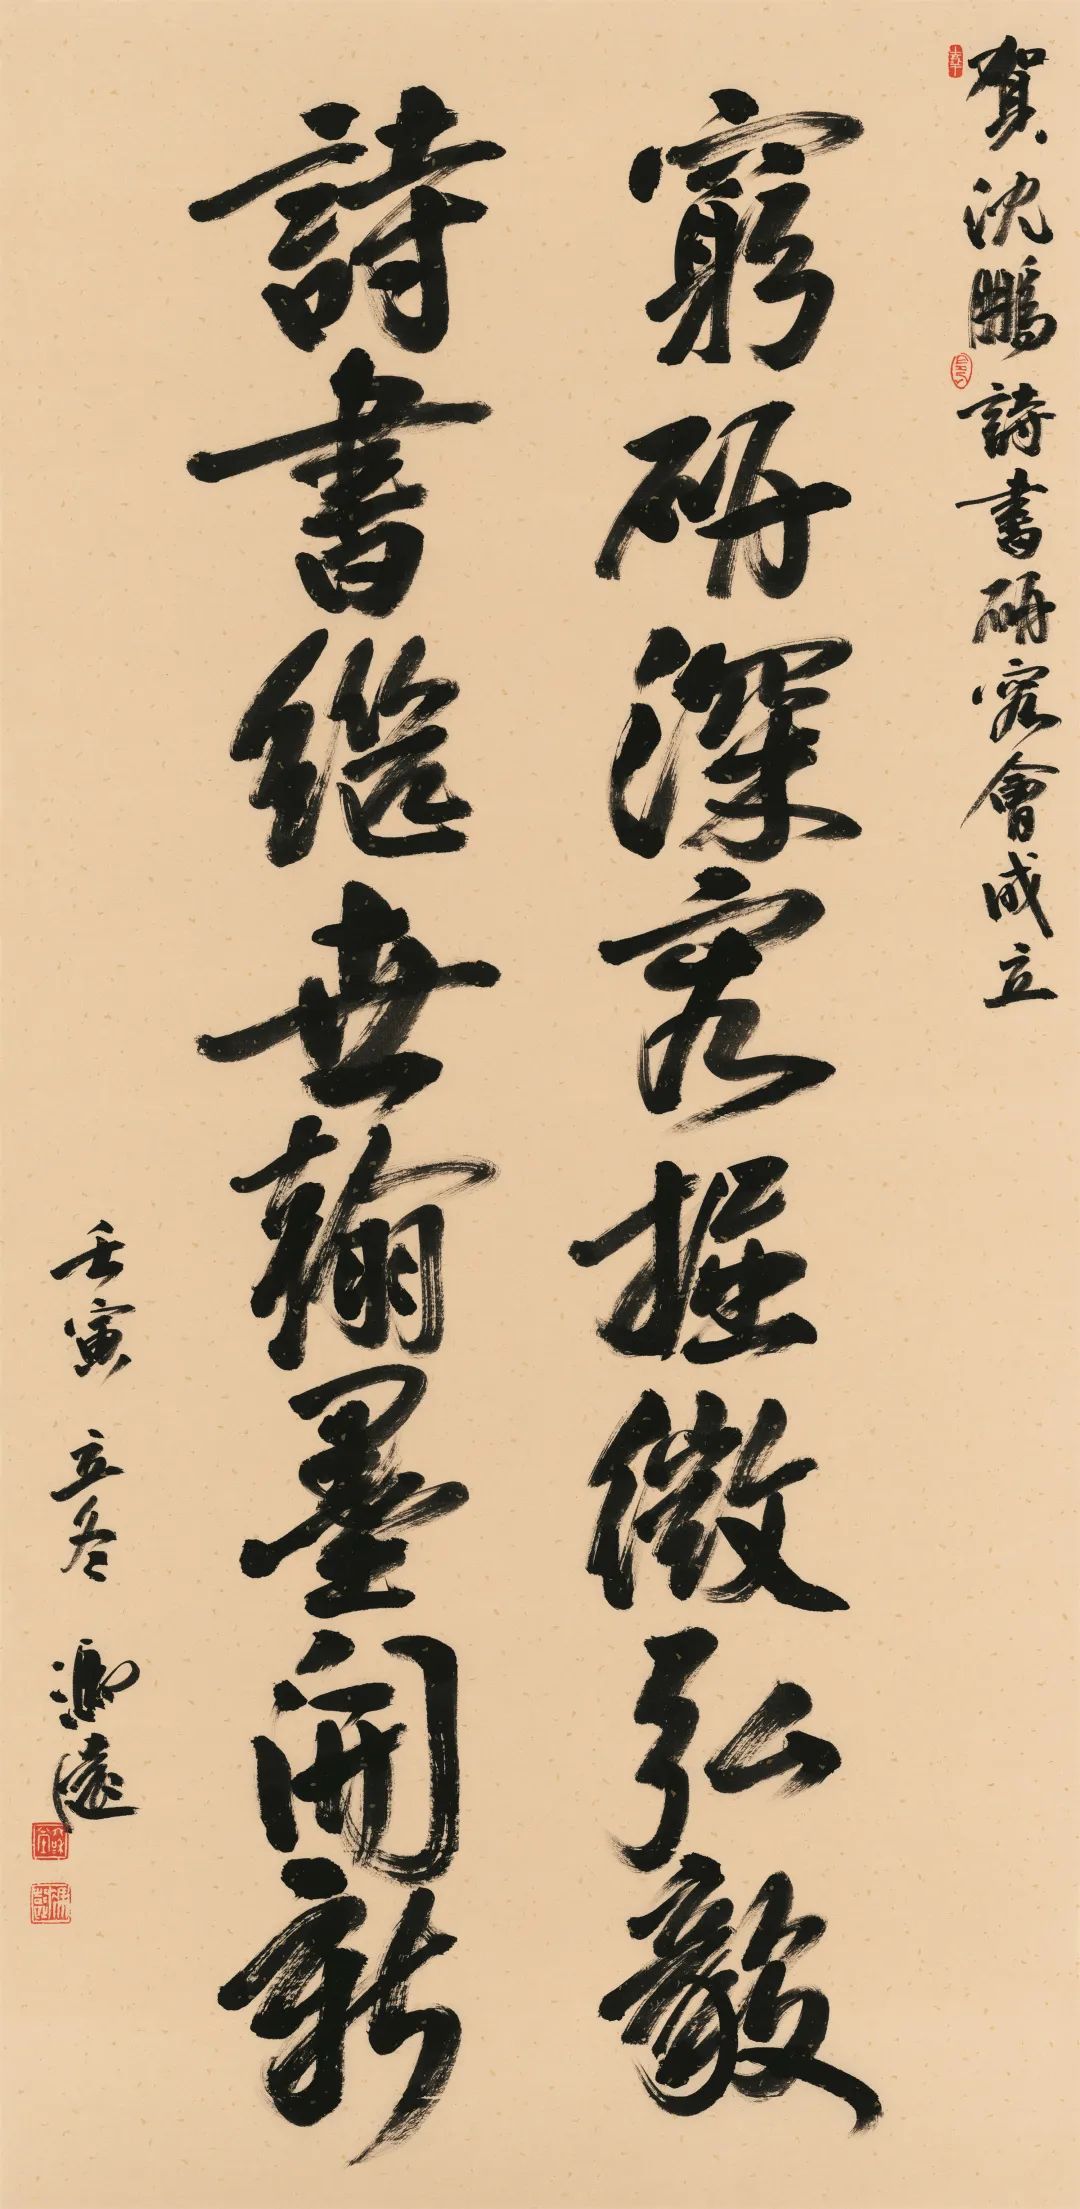 賀沈鵬詩書研究會成立
窮研深究掘微弘毅
詩書繼世翰墨開新
壬寅 立冬 馮遠